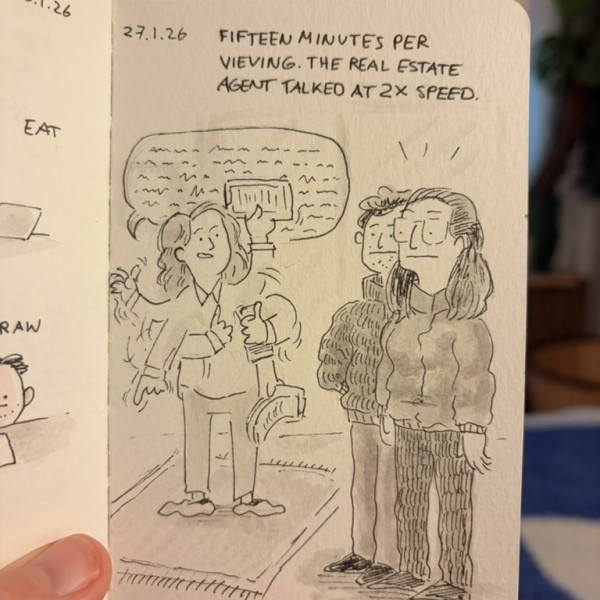 .1.26
EAT
RAW
27.1.26
FIFTEEN MINUTES PER
VIEVING. THE REAL ESTATE
AGENT TALKED AT 2X SPEED.